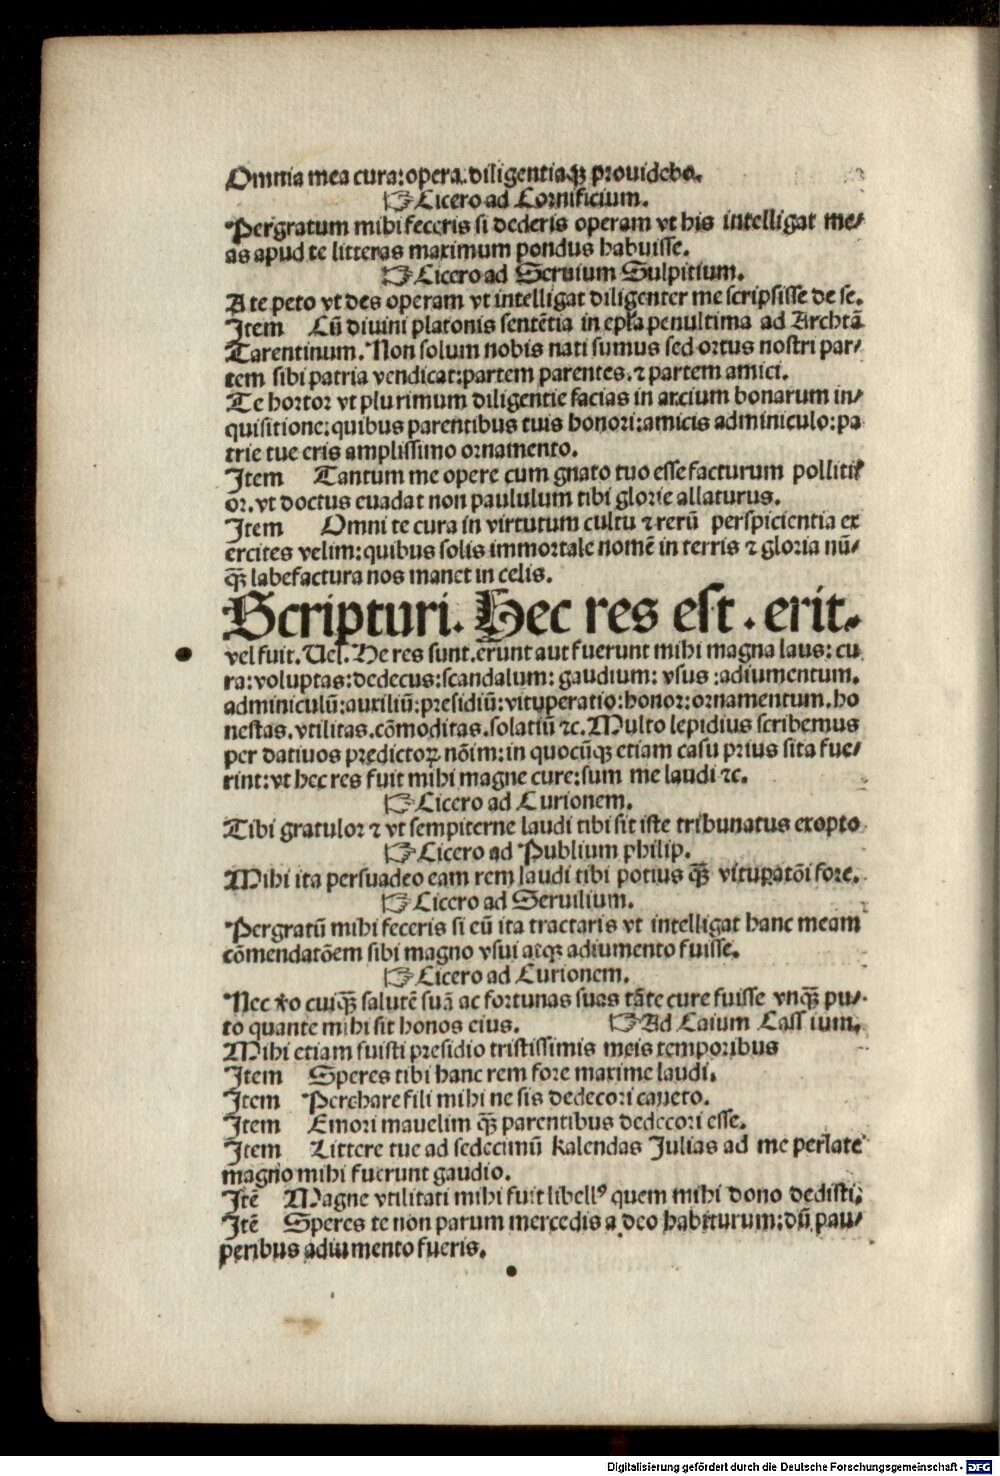 Omnia mea cura: opera. diligentiaqꝫ prouidebo.
☞ Cicero ad Cornificium.
Pergratum mihi feceris si dederis operam vt his intelligat me⸗
as apud te litteras maximum pondus habuisse.
☞ Cicero ad Seruium Sulpitium.
A te peto vt des operam vt intelligat diligenter me scripsisse de se.
Item Cū diuini platonis sentētia in epl̄a penultima ad Archtā
Tarentinum. Non solum nobis nati sumus sed ortus nostri par⸗
tem sibi patria vendicat: partem parentes. ⁊ partem amici.
Te hortor vt plurimum diligentie facias in artium bonarum in⸗
quisitione: quibus parentibus tuis honori: amicis adminiculo: pa
trie tue eris amplissimo ornamento.
Item Tantum me opere cum gnato tuo esse facturum pollitiꝰ
or. vt doctus euadat non paululum tibi glorie allaturus.
Item Omni te cura in virtutum cultu ⁊ rerū perspicientia ex
ercites velim: quibus solis immortale nomē in terris ⁊ gloria nū⸗
qꝫ labefactura nos manet in celis.
Scripturi. Hec res est. erit.
vel fuit. Uel. He res sunt. erunt aut fuerunt mihi magna laus: cu
ra: voluptas: dedecus: scandalum: gaudium: vsus: adiumentum.
adminiculū: auxiliū: presidiū: vituperatio: honor: ornamentum. ho
nestas. vtilitas. cōmoditas. solatiū ⁊c. Multo lepidius scribemus
per datiuos predictoꝝ nōim: in quocūqꝫ etiam casu prius sita fue⸗
rint: vt hec res fuit mihi magne cure: sum me laudi ⁊c.
☞ Cicero ad Curionem.
Tibi gratulor ⁊ vt sempiterne laudi tibi sit iste tribunatus exopto
☞ Cicero ad Publium philip.
Mihi ita persuadeo eam rem laudi tibi potius qꝫ̄ vituꝑatōi fore.
☞ Cicero ad Seruilium.
Pergratū mihi feceris si eū ita tractaris vt intelligat hanc meam
cōmendatōem sibi magno vsui atqꝫ adiumento fuisse.
☞ Cicero ad Curionem.
Nec ꝟo cuiqꝫ̄ salutē suā ac fortunas suas tāte cure fuisse vnqꝫ̄ pu⸗
to quante mihi sit honos eius. ☞ Ad Caium Cassium.
Mihi etiam fuisti presidio tristissimis meis temporibus
Item Speres tibi hanc rem fore maxime laudi.
Item Perchare fili mihi ne sis dedecori caueto.
Item Emori mauelim qꝫ̄ parentibus dedecori esse.
Item Littere tue ad sedecimū kalendas Julias ad me perlate
magno mihi fuerunt gaudio.
Itē Magne vtilitati mihi fuit libellꝰ quem mihi dono dedisti.
Itē Speres te non parum mercedis a deo habiturum: dū pau⸗
peribus adiumento fueris.
Digitalisierung gefördert durch die Deutsche Forschungsgemeinschaft - DFG